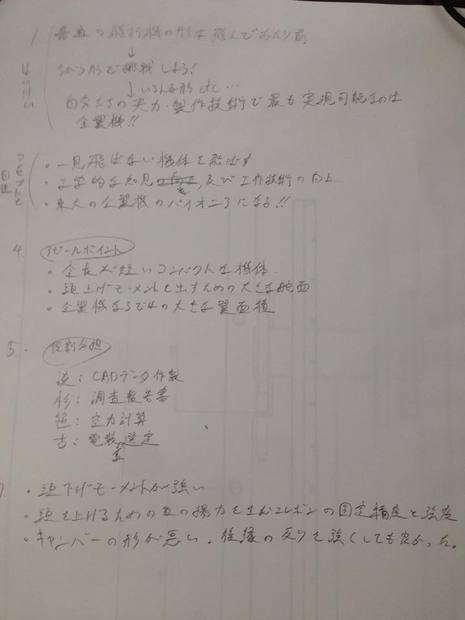 1. 普通の飛行機の形は飛んで当たり前
↓
ちがう形で挑戦しよう!
↓ いろんな形
自分たちの実力・製作技術で最も実現可能なのは
全翼機!!
コンセプトと目標
・一見飛ばない機体を飛ばす
・工学的な知見 及び工作技術の向上
・東大の全翼機のパイオニアになる!!
4. アピールポイント
・全長が短いコンパクトな機体
・頭上げモーメントを出すための大きな舵面
・全翼機ならではの大きな翼面積
5. 役割分担
CADデータ作製
杉: 調査報告書
空力計算
古: 電装選定
・頭下げモーメントが強い
・頭を上げるための負の揚力を生むエレボンの固定精度と強度
・キャンバーの形が悪い. 後縁の反りを強くしても良かった。